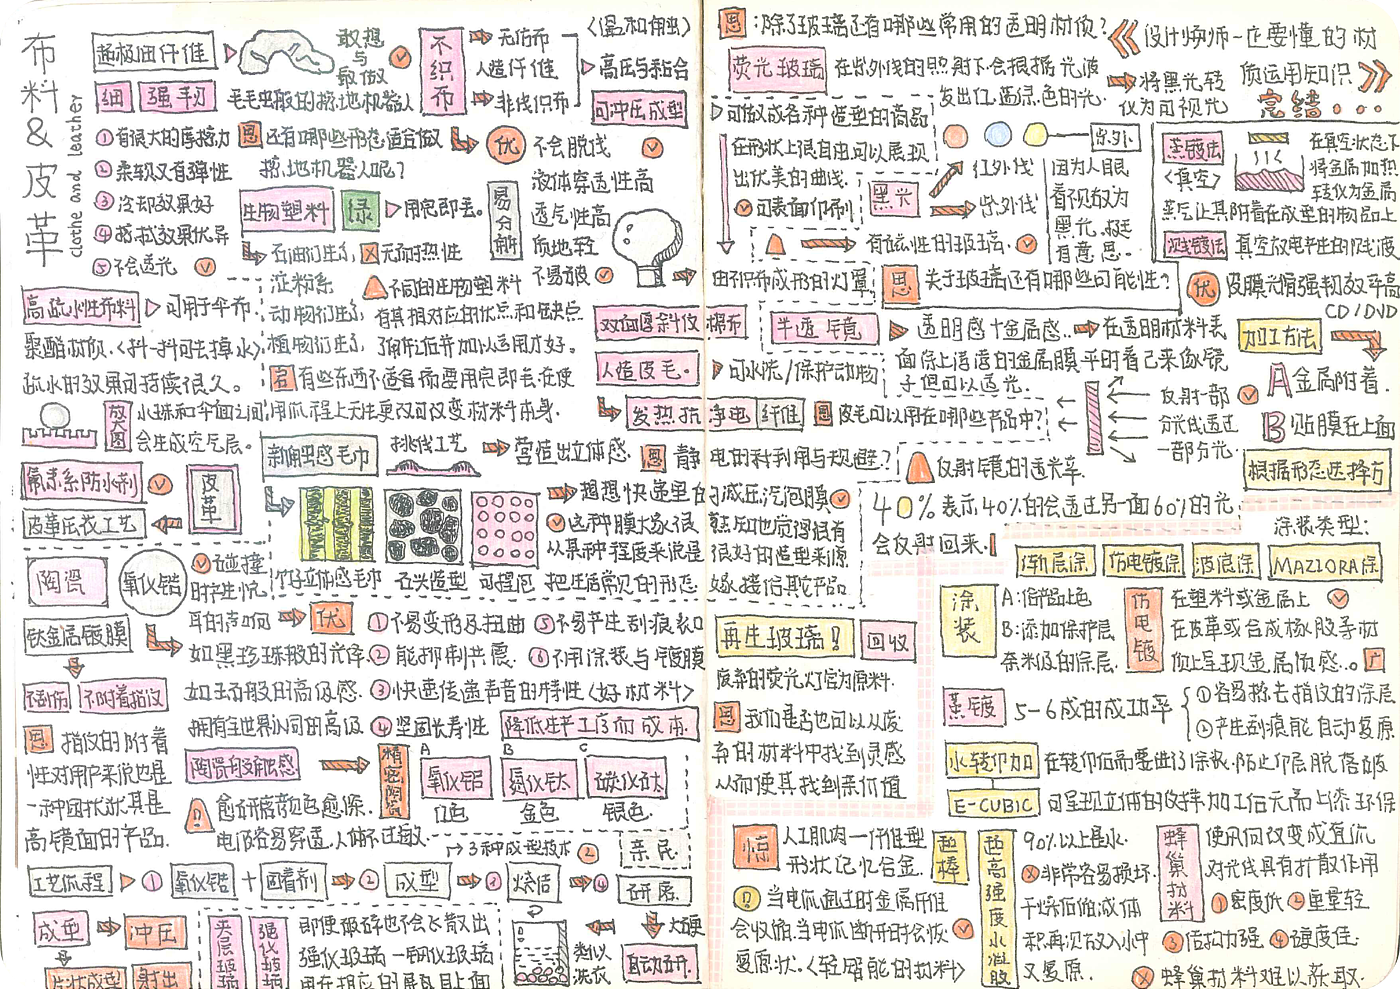 布料&皮革
clothe and leather
超极细纤维
敢想与敢做
细 强韧
毛毛虫般的擦地机器人
①有很大的摩擦力
②柔软又有弹性
③冷却效果好
④擦拭效果优异
⑤不会透光
思 还有哪些形态适合做
擦地机器人呢?
生物塑料 绿 用完即丢。
石油衍生 无耐热性
淀粉系 不同的生物塑料
动物衍生 有其相对应的优点和缺点
植物衍生 了解过后并加以运用才好。
有些东西不适合需要用完即丢,在使
用流程上无法更改可改变材料本身。
不织布
无纺布
人造纤维
非线织布
〈温和触〉
高压与黏合
可冲压成型
优 不会脱线
易分解
液体穿透性高
透气性高
质地轻
不易皱
高疏水性布料 可用于伞布
聚酯材质〈抖一抖可去掉水〉
疏水的效果可持续很久。
放大图
小球和伞面之间
会生成空气层。
双面图斜纹棉布
人造皮毛。
可水洗/保护动物
发热抗静电纤维
思 皮毛可以用在哪些产品中?
新触感毛巾
挑线工艺
营造出立体感.
思 静电的利用与规避?
氟素系防水剂
皮革
皮革压花工艺
想想快递里的减压汽泡膜
这种膜大家很熟知也觉得很有
从某种程度来说是很好的造型来源
把生活常见的形态嫁接估其它产品
立体感毛巾 石头造型 可捏泡
陶瓷
氧化锆
碰撞
时产生悦
耳的声响
钛金属镀膜
如黑珍珠般的光泽
如玉石般的高级感.
拥有全世界认同的高级
不刮伤 不附着指纹
优
①不易变形及扭曲 ⑤不易产生刮痕裂口
②能抑制共震. ⑥不用涂装与气镀膜
③快速传递声音的特性〈好材料〉
④坚固长寿性 降低生产工序而成本.
思 指纹的附着
性对用户来说也是
一种困扰尤其是
高镜面的产品.
陶瓷的接触感
精密陶瓷
A 氧化铝 白色
B 氮化钛 金色
C 碳化钛 银色.
愈研磨颜色愈深.
电波容易穿透,人体不过敏.
3种成型技术②
亲民
工艺流程 ① 氧化锆 + 固着剂 ② 成型 ③ 烧结 ④ 研磨
成型 冲压
片状成型 射出
夹层玻璃
强化玻璃
即使破碎也不会飞散出
强化玻璃一钢化玻璃
用在相应的屏幕且上面
类似洗衣
自动研
思:除了玻璃还有哪些常用的透明材质?
设计师师一定要懂的材
质运用知识
完结...
荧光玻璃
在紫外线的照射下会根据光波
发出红.蓝绿.色的光.
将黑光转
化为可视光
可做成各种造型的商品
在形状上很自由可以展现
出优美的曲线.
可表面印刷
紫外
黑光
红外线
紫外线
因为人眼
看不见故为
黑光.挺
有意思.
有磁性的玻璃.
由不织布成形的灯罩
思 关于玻璃还有哪些可能性?
蒸镀法〈真空〉
在真空状态下
将金属加热
转化为金属
蒸气让其附着在成型的物品上
溅镀法 真空放电产生的溅镀
优 皮膜光膜强韧效率高
CD/DVD
半透镜
透明感+金属感. 在透明材料表
面涂上薄薄的金属膜.平时看已来像镜
子但可以透光.
加工方法
A 金属附着.
B 贴膜在上面
根据形态选择方
反射一部
分光线透过
一部分光.
反射镜的透光率.
40%表示40%的会透过另一面60%的光
会反射回来.
涂装类型:
渐层涂 仿电镀涂 波浪涂 MAZIORA涂
涂装
A:给产品上色
B:添加保护层
奈米级的涂层.
仿电镀
在塑料或金属上
在皮革或合成橡胶等材
质上呈现金属质感.。广
再生玻璃! 回收
废弃的荧光灯管为原料.
思 我们是否也可以从废
弃的材料中找到灵感
从而使其找到新价值
蒸镀 5-6成的成功率
①容易擦去指纹的涂层
②产生刮痕能自动复原
水转印加 在转印后需要进行涂装.防止印层脱落破
E-CUBIC 可呈现立体的纹样加工后无需上漆环保
惊
人工肌肉一纤维型
形状记忆合金.
超棒
当电流通过时金属纤维
会收缩.当电流断开时会恢
复原状.〈轻智能的材料〉
超高强度水凝胶
90%以上是水.
非常容易损坏.
干燥后缩减体
积再次放入水中
又复原.
蜂巢材料
使用何改变成直流
对光线具有扩散作用
①密度低 ②重量轻
③结构力强 ④硬度佳.
蜂巢材料难以获取.